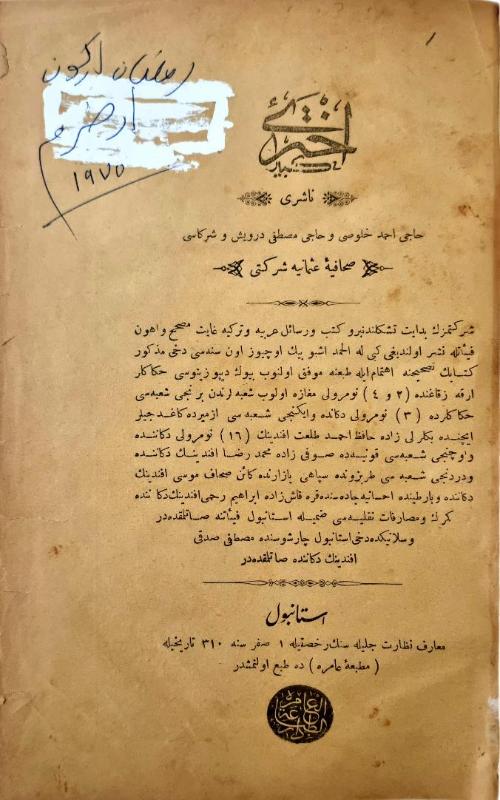 رمضان ارگون
ارضروم
۱۹۷۵
۱
اختری
كبير
ناشری
حاجی احمد خلوصی و حاجی مصطفی درویش و شركاسی
صحافیهٔ عثمانیه شركتی
شركتمزك بدایت تشكلندنبرو كتب و رسائل عربیه و تركیه غایت مصحح و اهون
فیئاتله نشر اولندیغی كبی له الحمد اشبو بیك اوچیوز اون سنه سی دخی مذكور
كتابك تصحیحنه اهتمام ایله طبعنه موفق اولنوب بیوك دیپوزیتوسی حكاكلر
ارقه زقاغنده (۲ و ٤) نومرولی مغازه اولوب شعبه لرندن برنجی شعبه سی
حكاكلرده (۳) نومرولی دكانده وایكنجی شعبه سی ازمیرده كاغدجیلر
ایچنده بكلرلی زاده حافظ احمد طلعت افندینك (۱٦) نومرولی دكاننده
واوچنجی شعبه سی قونیه ده صوفی زاده محمد رضا افندینك دكاننده
ودردنجی شعبه سی طربزونده سپاهی بازارنده كائن صحاف موسی افندینك
دكاننده وبارطینده احسانیه جاده سنده قره قاش زاده ابراهیم رحمی افندینك دكاننده
كمرك ومصارفات نقلیه سی ضمیله استانبول فیئاتنه صاتلقده در
وسلانیكده دخی استانبول چارشوسنده مصطفی صدقی
افندینك دكاننده صاتلقده در
استانبول
معارف نظارت جلیله سنك رخصتیله ۱ صفر سنه ۳۱۰ تاریخیله
(مطبعهٔ عامره) ده طبع اولنمشدر